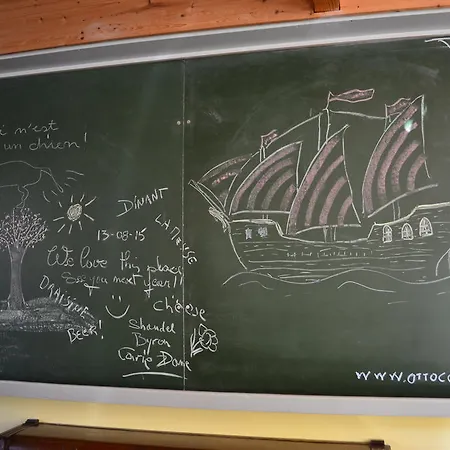 i n'est
un chien!
DINANT
13-08-15
We love this place
See you next year!!
DRAISINE
BEER!
cheese
Shandel
Byron
Carpe Diem
WWW.OTTOCO